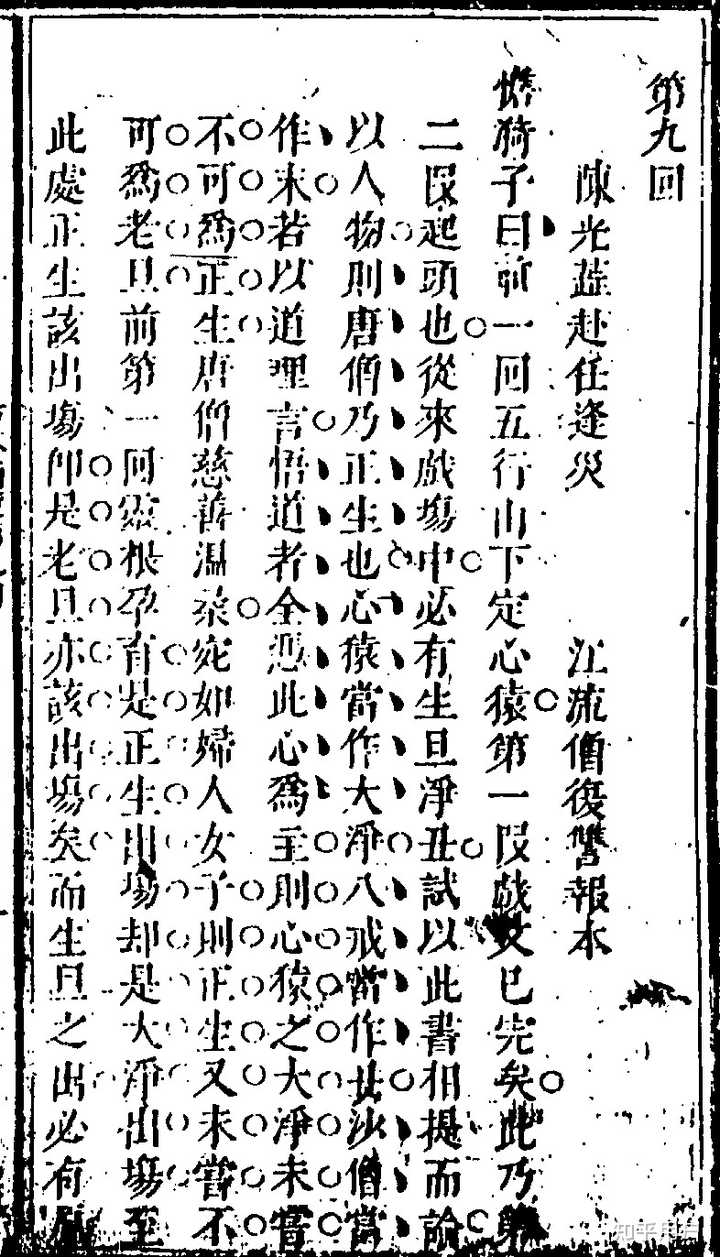 第九回
陳光蕋赴任逢災 江流僧復讐報本
憺漪子曰前一回五行山下定心猿第一叚戯文已完矣此乃第
二叚起頭也從來戯塲中必有生旦淨丑試以此書相提而論
以人物則唐僧乃正生也心猿當作大淨八戒當作丑沙僧當
作末若以道理言悟道者全憑此心爲主則心猿之大淨未嘗
不可爲正生唐僧慈善溫柔宛如婦人女子則正生又未嘗不
可爲老旦前第一回靈根孕育是正生出塲却是大淨出塲至
此處正生該出塲卽是老旦亦該出塲矣而生旦之出必有
知乎用户